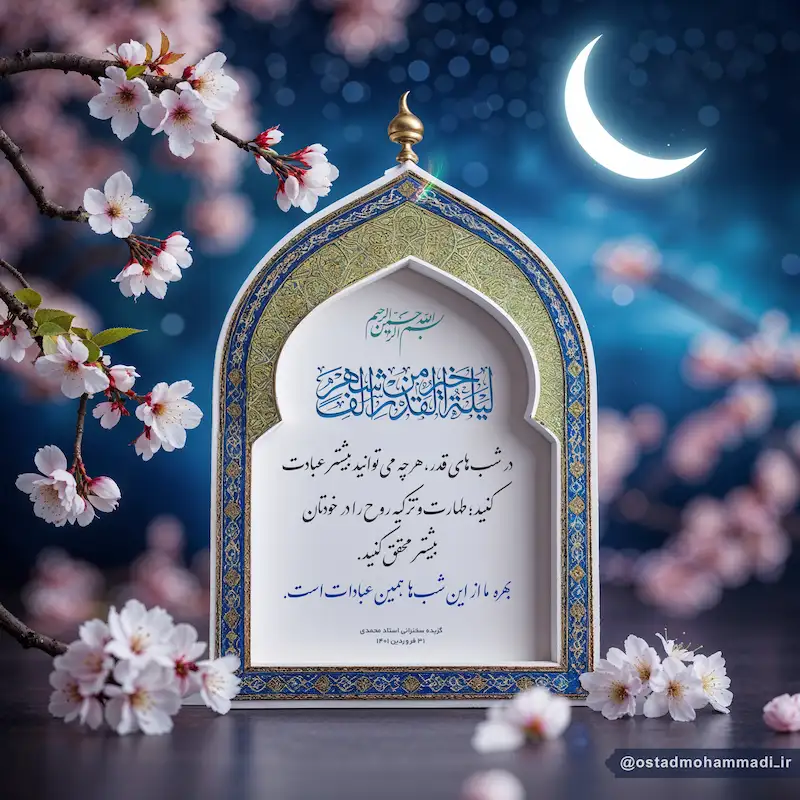 بسم الله الرحمن الرحیم
لیلة القدر خیر من الف شهر
در شب‌های قدر، هر چه می‌توانید بیشتر عبادت
کنید؛ طهارت و تزکیه روح را در خودتان
بیشتر محقق کنید.
بهره ما از این شب‌ها همین عبادات است.
گزیده سخنرانی استاد محمدی
۳۱ فروردین ۱۴۰۱
@ostadmohammadi_ir